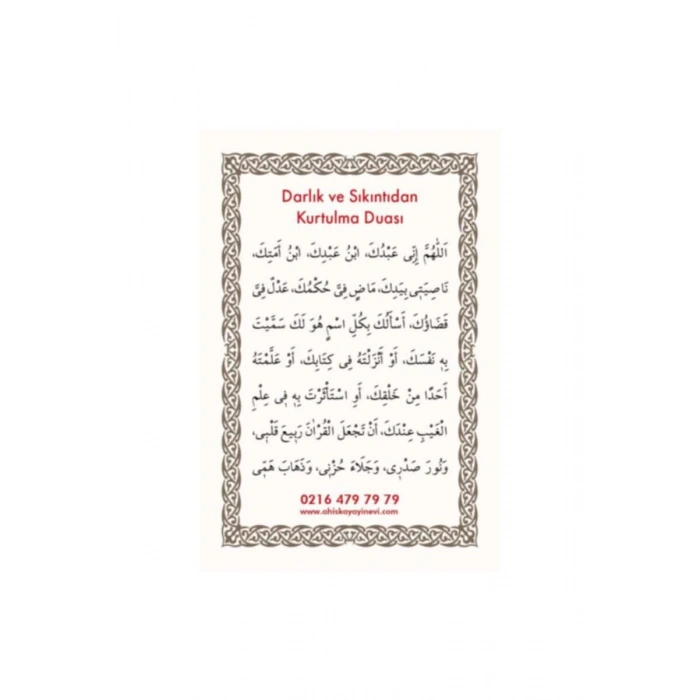 Darlık ve Sıkıntıdan
Kurtulma Duası
اَللّٰهُمَّ اِنِّى عَبْدُكَ، ابْنُ عَبْدِكَ، ابْنُ أَمَتِكَ،
نَاصِيَتِى بِيَدِكَ، مَاضٍ فِىَّ حُكْمُكَ، عَدْلٌ فِىَّ
قَضَاؤُكَ، أَسْأَلُكَ بِكُلِّ اسْمٍ هُوَ لَكَ سَمَّيْتَ
بِهِ نَفْسَكَ، أَوْ أَنْزَلْتَهُ فِى كِتَابِكَ، أَوْ عَلَّمْتَهُ
أَحَدًا مِنْ خَلْقِكَ، أَوِ اسْتَأْثَرْتَ بِهِ فِى عِلْمِ
الْغَيْبِ عِنْدَكَ، أَنْ تَجْعَلَ الْقُرْاٰنَ رَبِيعَ قَلْبِى،
وَنُورَ صَدْرِى، وَجَلَاءَ حُزْنِى، وَذَهَابَ هَمِّى
0216 479 79 79
www.ahiskayayinevi.com